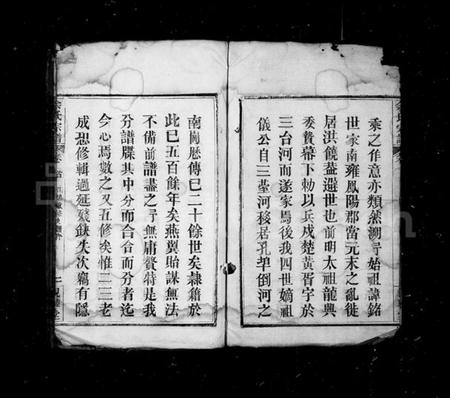 乘之作意亦類然溯予始祖諱銘
世家南雍鳳陽郡當元末之亂徙
居洪饒蓋避世也前明太祖龍興
委贄幕下勅以兵戍楚黃胥宇於
三台河而遂家焉後我四世嫡祖
儀公自三臺河移居孔埠倒河之
南閱歷傳已二十餘世矣隸籍於
此已五百餘年矣燕翼貽謀無法
不備前譜盡之予無庸贅特是我
分譜牒其中分而合合而分者迄
今心焉數之又五修矣惟二三老
成想修輯過延殘缺失次竊有隱
氏宗譜